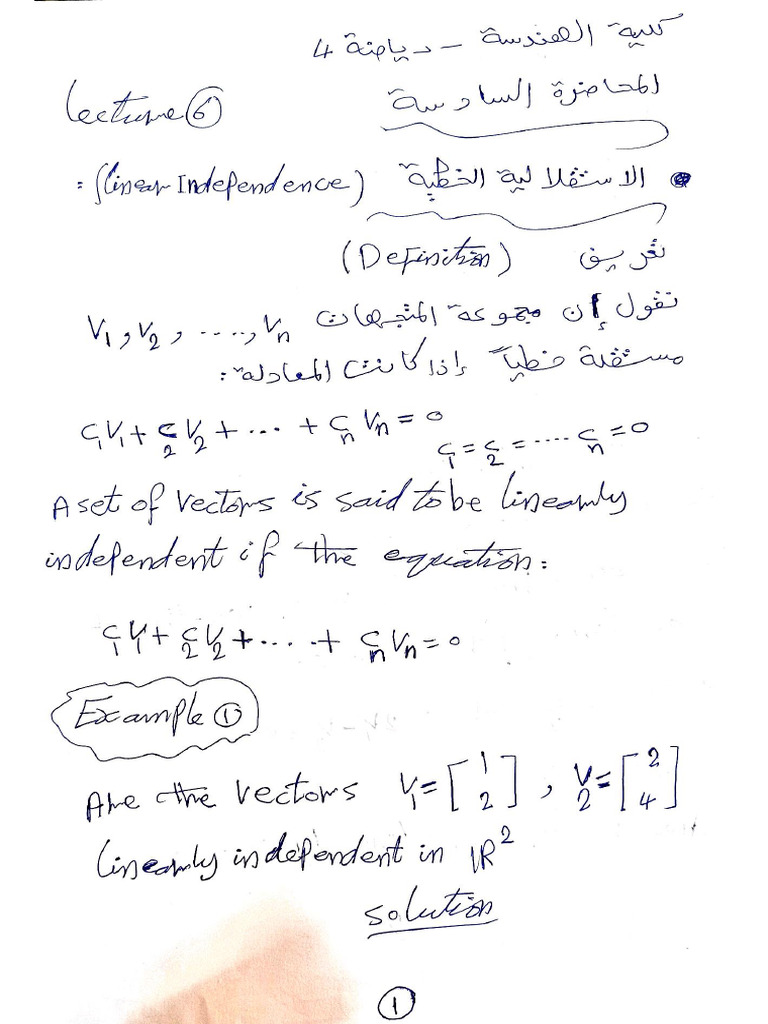 كلية الهندسة - رياضة 4
المحاضرة السادسة
Lecture 6
الاستقلالية الخطية (Linear Independence) :
تعريف (Definition)
نقول إن مجموعة المتجهات V₁, V₂, ...., Vₙ
مستقلة خطياً إذا كانت المعادلة:
C₁V₁ + C₂V₂ + ... + CₙVₙ = 0
C₁ = C₂ = .... Cₙ = 0
A set of vectors is said to be linearly
independent if the equation:
C₁V₁ + C₂V₂ + .... + CₙVₙ = 0
Example ①
Are the vectors V₁ = [1 2], V₂ = [2 4]
linearly independent in ℝ²
solution
①